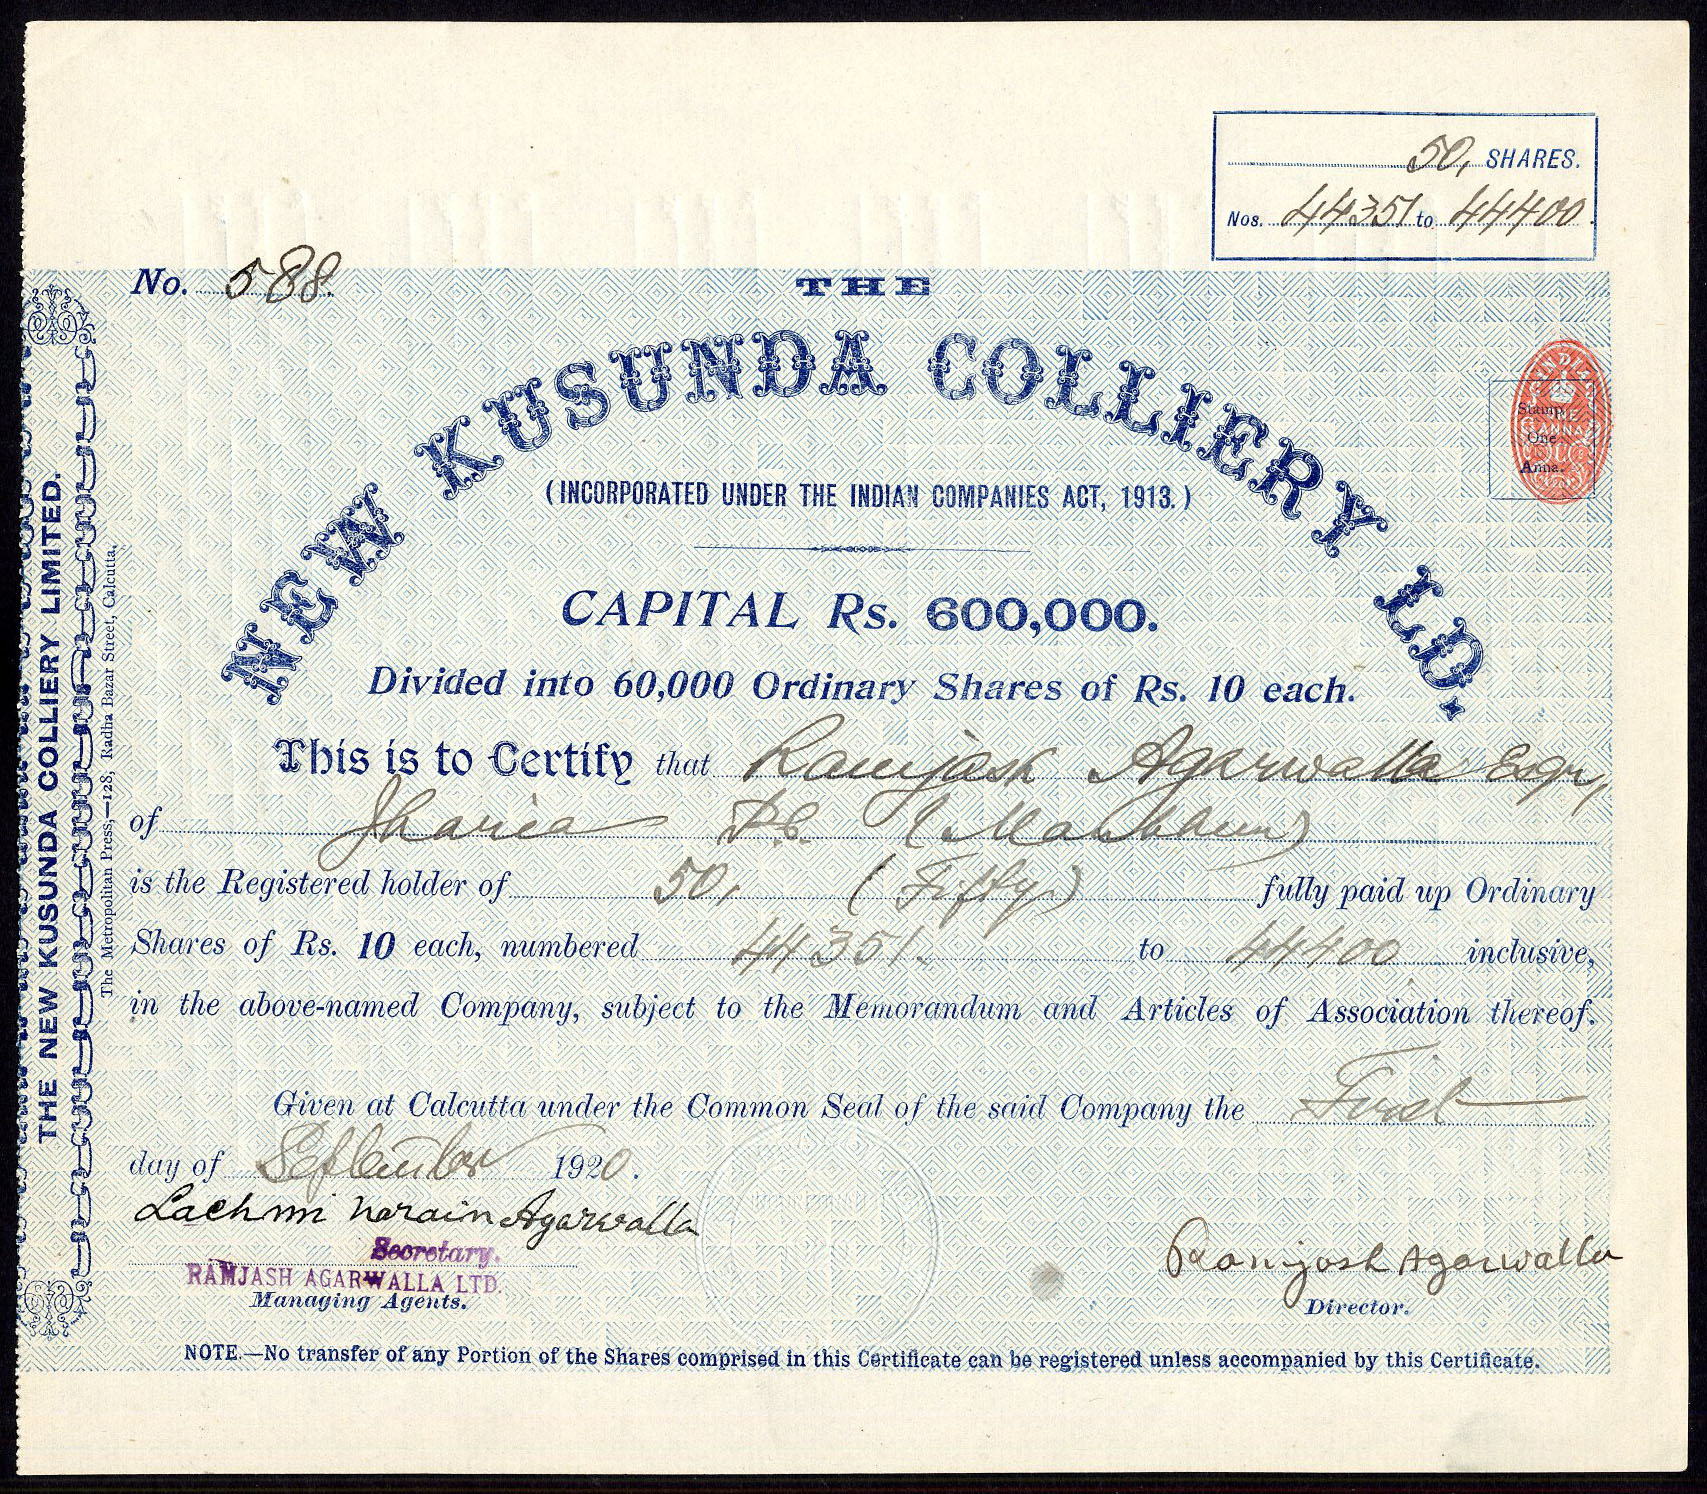 50, SHARES.
Nos. 44351 to 44400
No. 588
THE
NEW KUSUNDA COLLIERY LD.
(INCORPORATED UNDER THE INDIAN COMPANIES ACT, 1913.)
INDIA
ONE
ANNA
Stamp
One
Anna.
CAPITAL Rs. 600,000.
Divided into 60,000 Ordinary Shares of Rs. 10 each.
This is to Certify that Ramjash Agarwalla Esqr,
of Jharia P.O. (Manbhum)
is the Registered holder of 50, (Fifty) fully paid up Ordinary
Shares of Rs. 10 each, numbered 44351. to 44400 inclusive,
in the above-named Company, subject to the Memorandum and Articles of Association thereof.
Given at Calcutta under the Common Seal of the said Company the First
day of September 1920.
Lachmi Narain Agarwalla
Secretary.
RAMJASH AGARWALLA LTD.
Managing Agents.
Ramjash Agarwalla
Director.
NOTE.—No transfer of any Portion of the Shares comprised in this Certificate can be registered unless accompanied by this Certificate.
THE NEW KUSUNDA COLLIERY LIMITED.
The Metropolitan Press,—128, Radha Bazar Street, Calcutta.